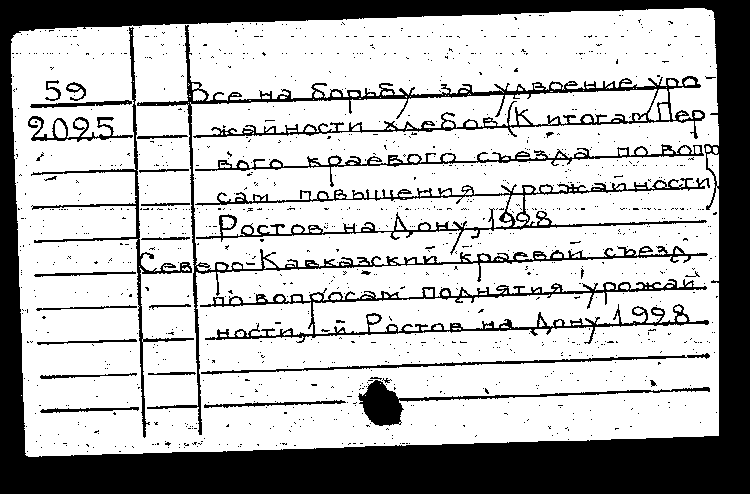 59 Все на борьбу за удвоение уро-
2025 жайности хлебов (К итогам Пер-
вого краевого съезда по вопро
сам повышения урожайности)
Ростов на Дону, 1928
Северо-Кавказский краевой съезд,
по вопросам поднятия урожай-
ности, 1-й. Ростов на Дону 1928